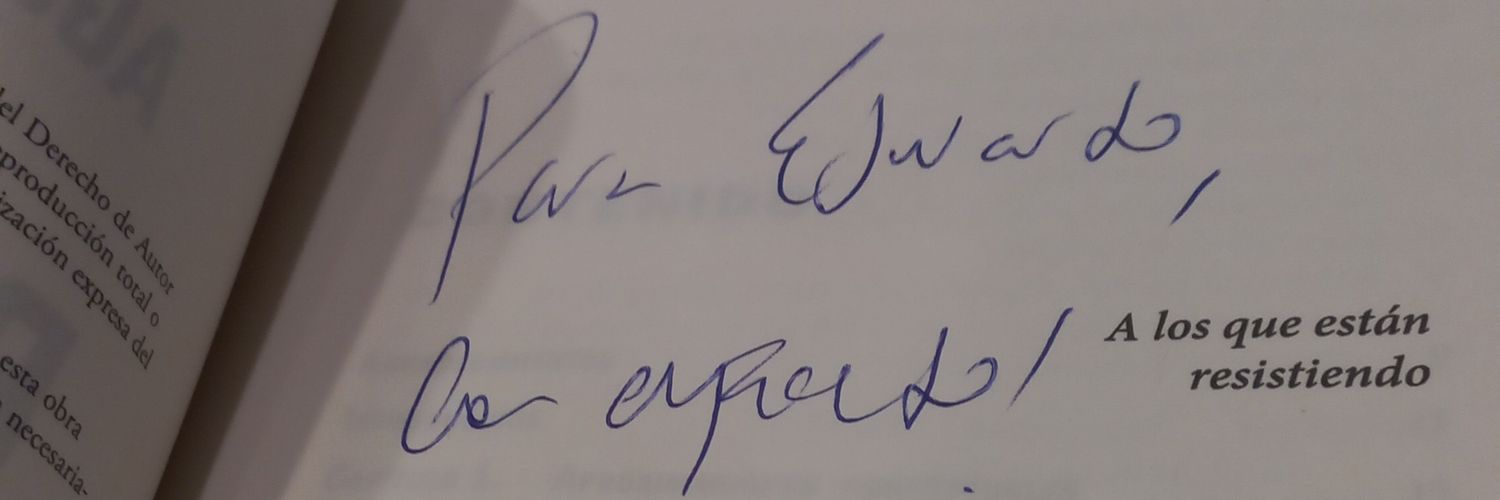 del Derecho de Autor
reproducción total o
ización expresa del
esta obra
necesaria-
Para Eduardo,
Con
A los que están
resistiendo